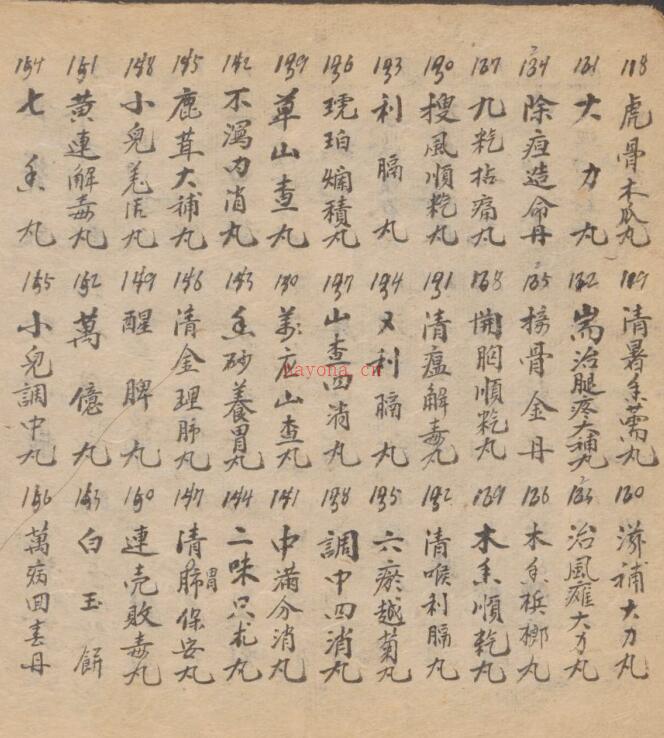 118 虎骨木瓜丸
119 清暑香薷丸
120 滋補大力丸
121 大力丸
122 耑治腿疼大補丸
123 治風癱大力丸
124 除疸造命丹
125 接骨金丹
126 木香梹榔丸
127 九氣拈痛丸
128 開胸順氣丸
129 木香順氣丸
130 搜風順氣丸
131 清瘟解毒丸
132 清喉利膈丸
133 利膈丸
134 又利膈丸
135 六瘀越菊丸
136 琥珀爛積丸
137 山查四消丸
138 調中四消丸
139 草山查丸
140 萬应山查丸
141 中滿分消丸
142 不瀉內消丸
143 香砂養胃丸
144 二味只术丸
145 鹿茸大補丸
146 清金理肺丸
147 清肺胃保安丸
148 小兒羌活丸
149 醒脾丸
150 連壳敗毒丸
151 黃連解毒丸
152 萬億丸
153 白玉餅
154 七香丸
155 小兒調中丸
156 萬病回春丹
kayona.cn